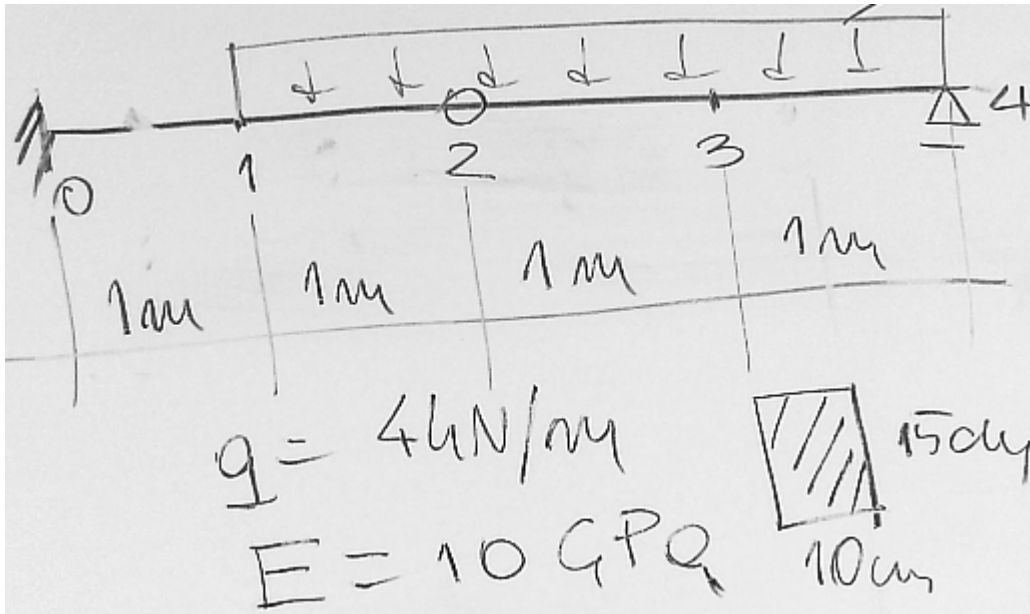 4
0 1 2 3
1m 1m 1m 1m
q = 4kN/m
15cm
E = 10 GPa
10cm